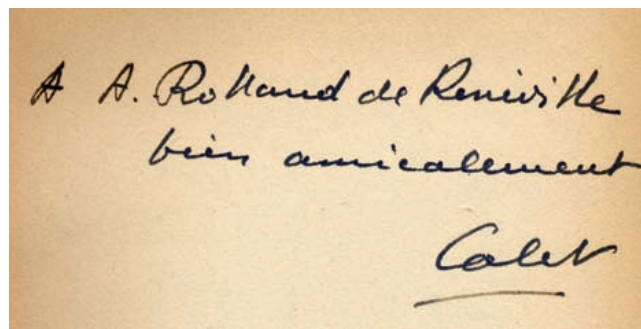 A A. Rolland de Renéville
bien amicalement
Calet